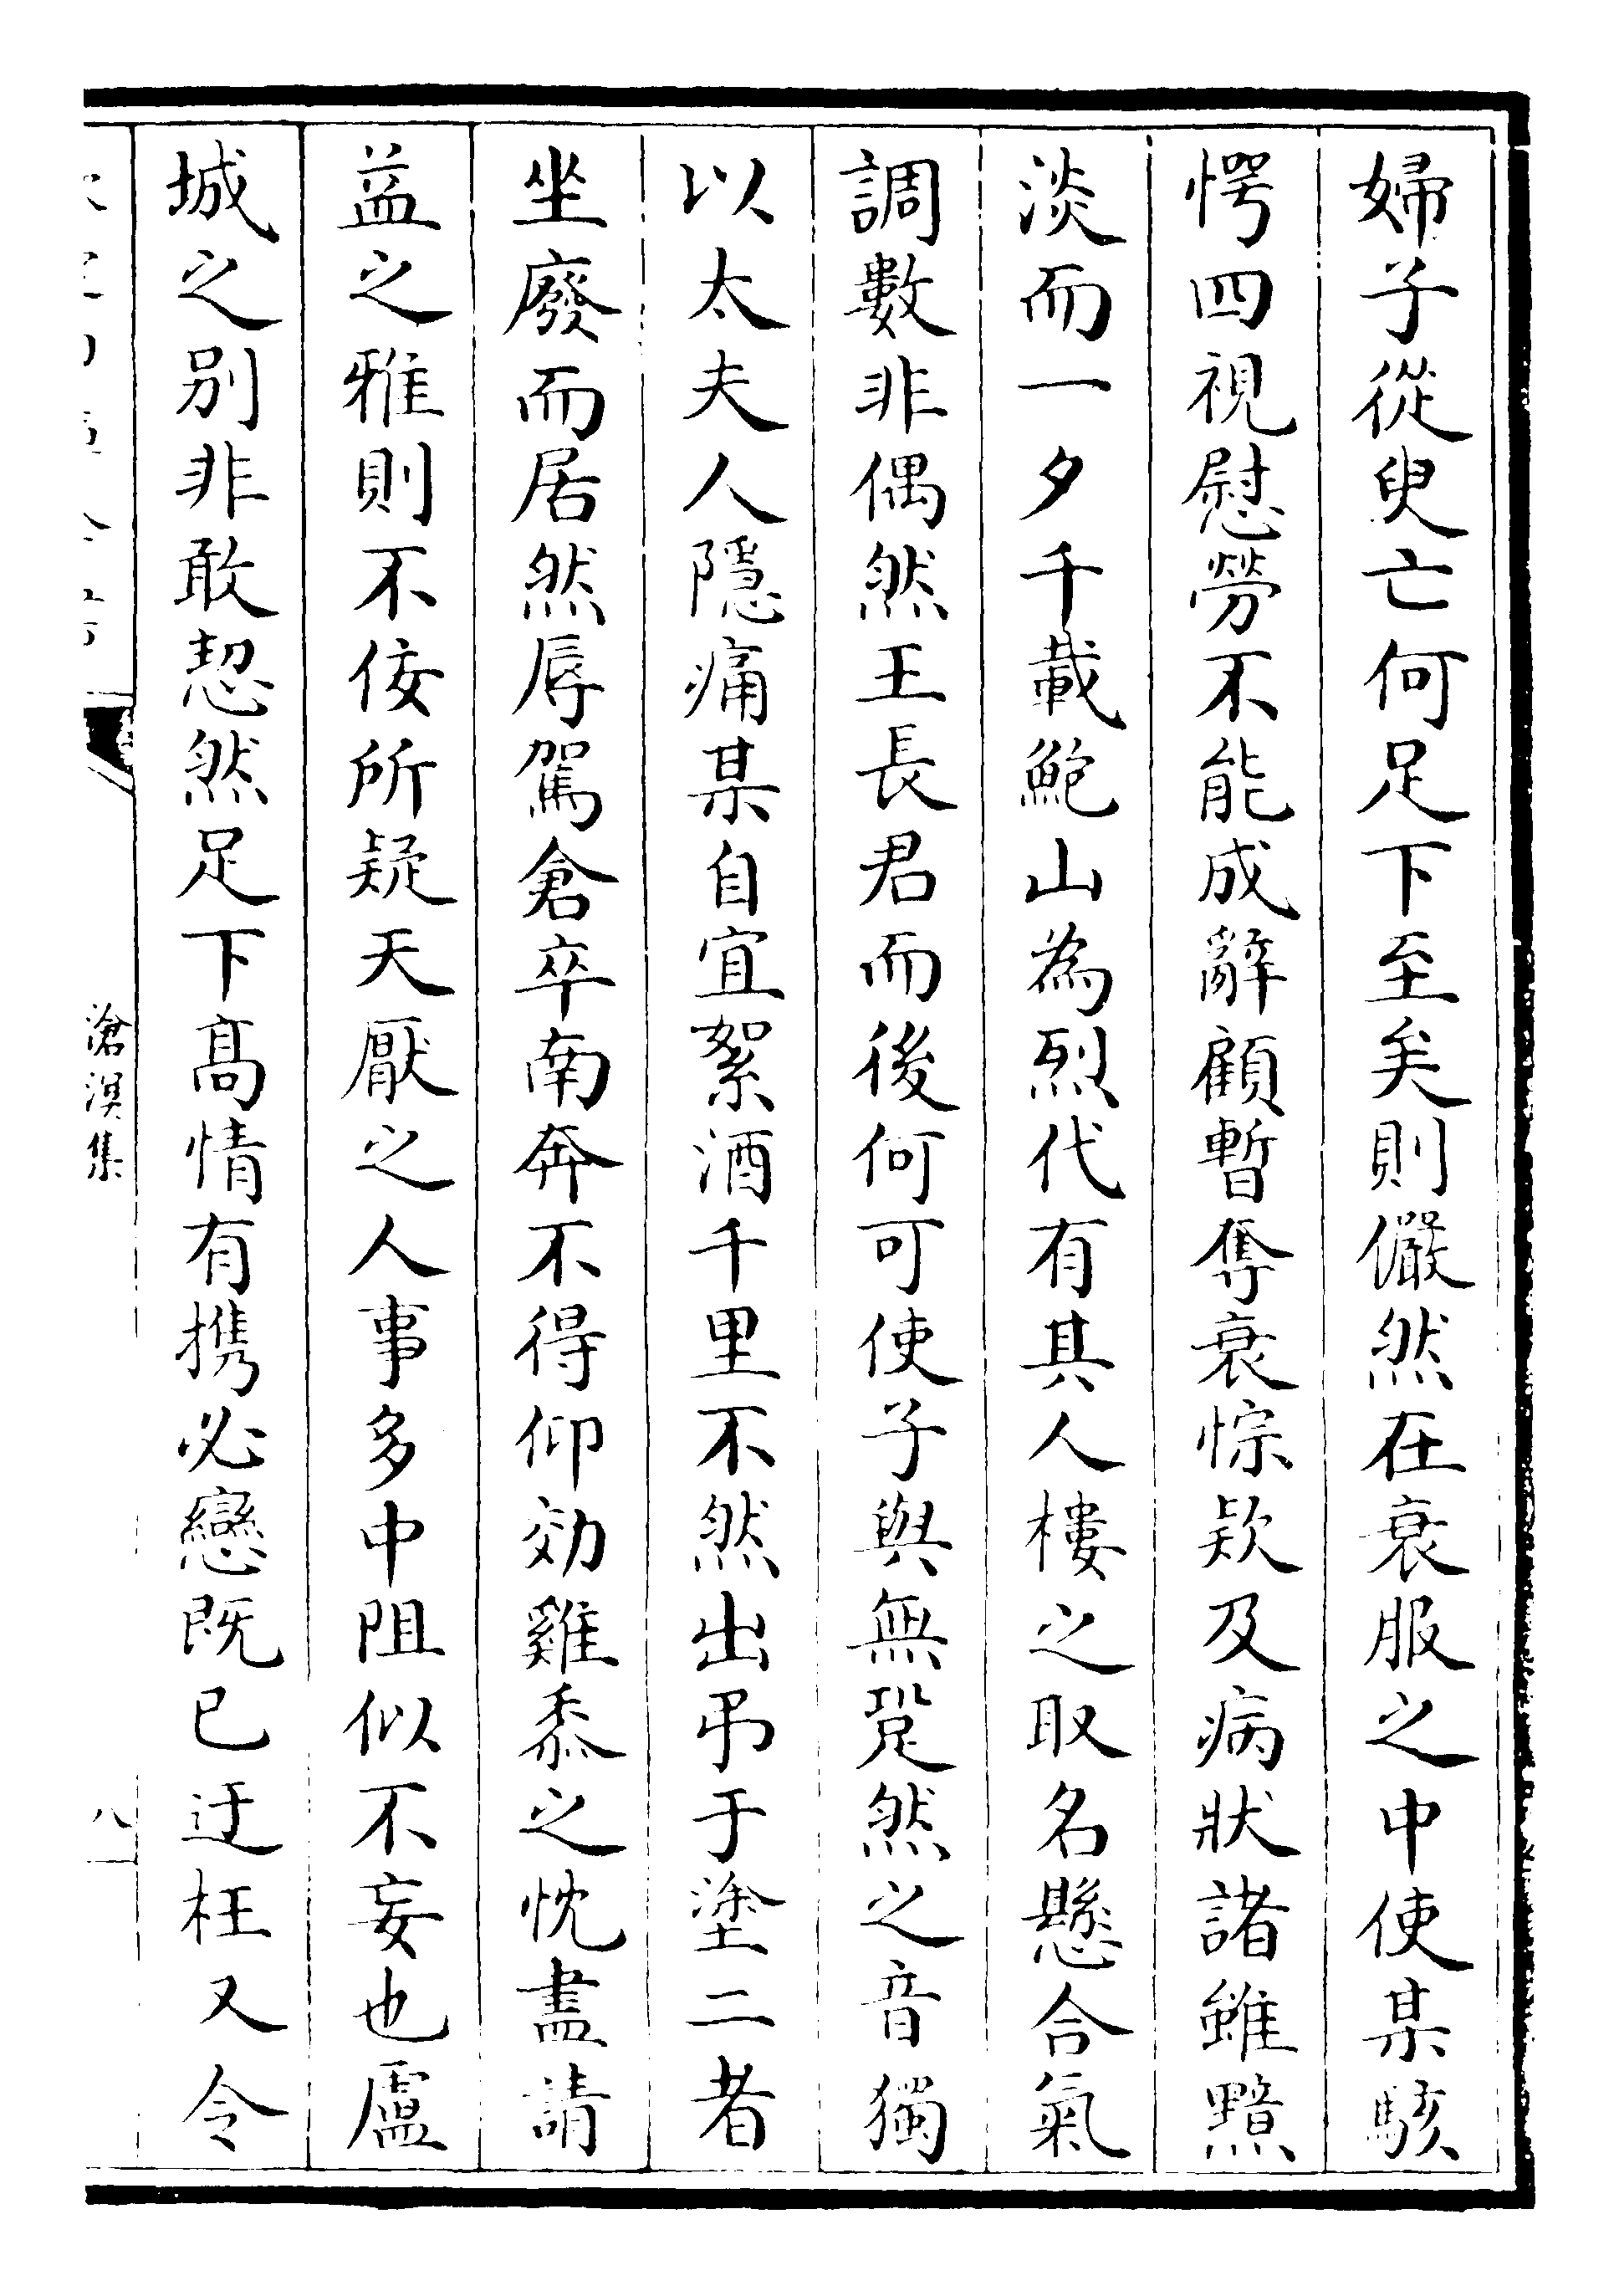 婦子從臾亡何足下至矣則儼然在衰服之中使某駭
愕四視慰勞不能成辭顧暫奪衰悰欵及病狀諸雖黯
淡而一夕千載鮑山為烈代有其人樓之取名懸合氣
調數非偶然王長君而後何可使子與無跫然之音獨
以太夫人隱痛某自宜絮酒千里不然出弔于塗二者
坐廢而居然辱駕倉卒南奔不得仰効雞黍之忱盡請
益之雅則不佞所疑天厭之人事多中阻似不妄也盧
城之别非敢恝然足下髙情有携必戀既已迂枉又令
滄溟集
八